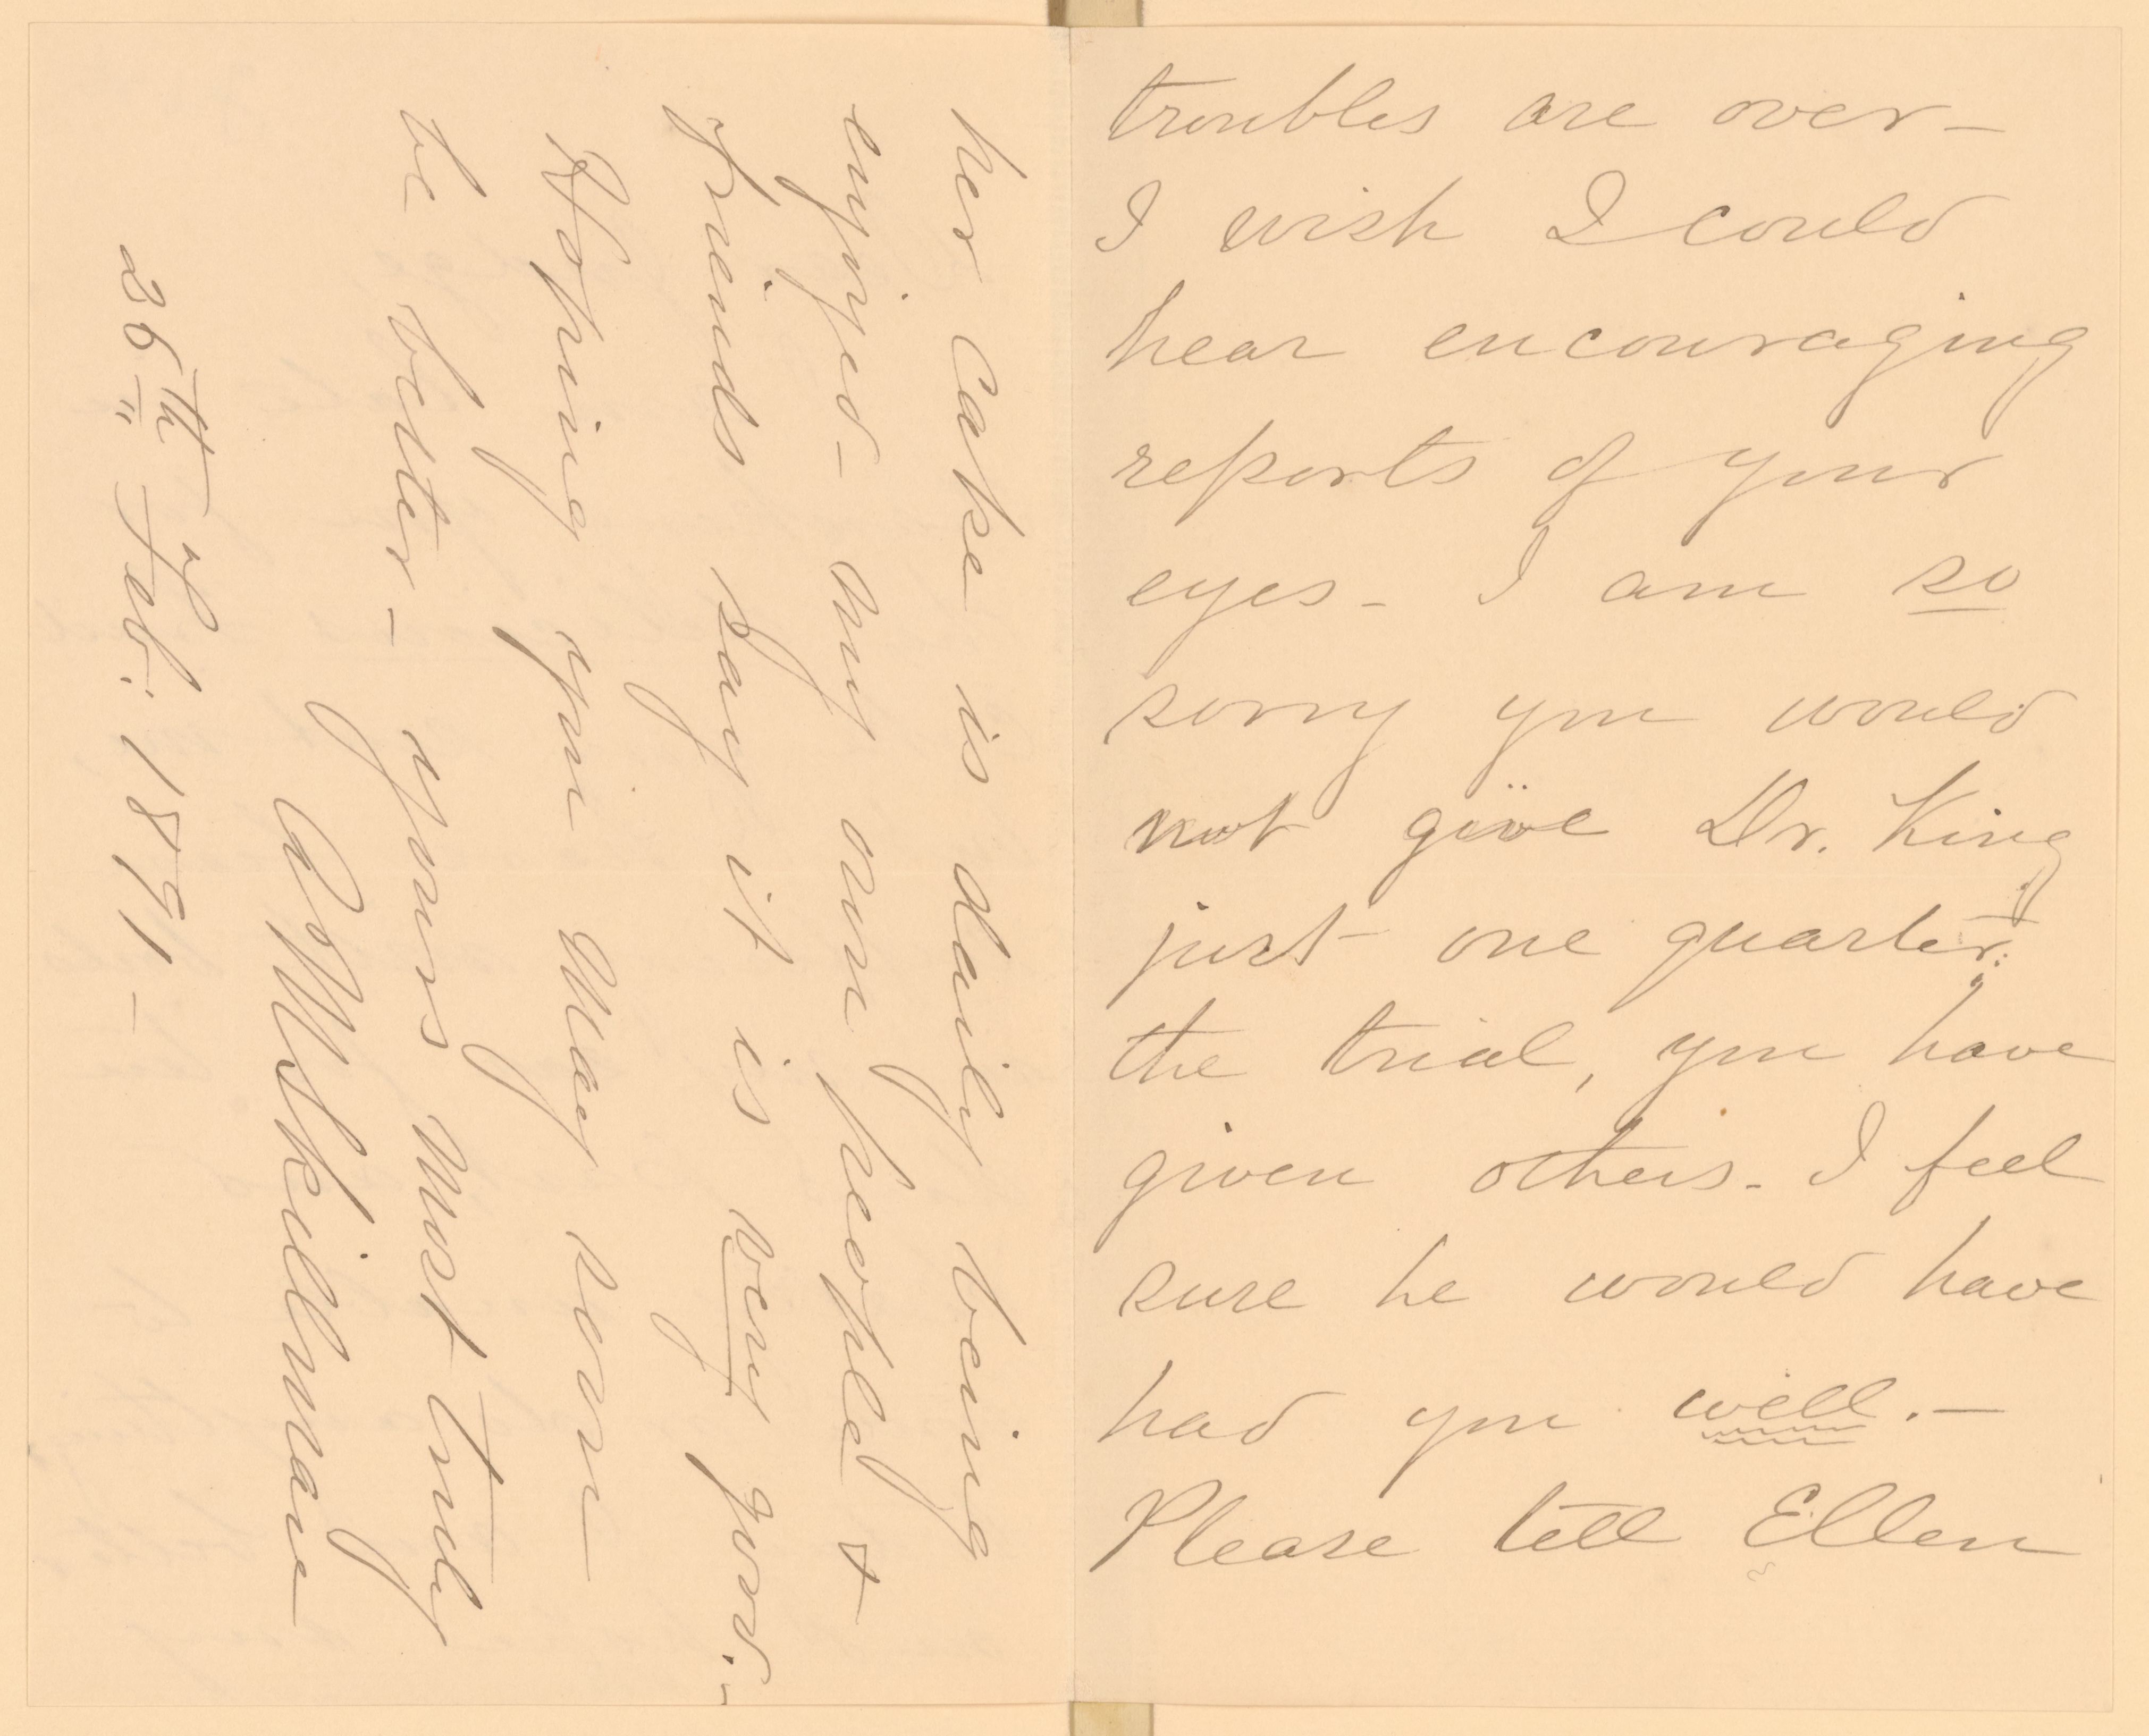 troubles are over—
I wish I could
hear encouraging
reports of your
eyes— I am so
sorry you would
not give Dr. King
just one quarter
the trial, you have
given others— I feel
sure he would have
had you well.—
Please tell Ellen
her Cake is daily being
enjoyed— My own people &
friends say it is very good.—
Hoping you May soon
be better— yours Most truly
AMSkillman
26th Feb: 1891—